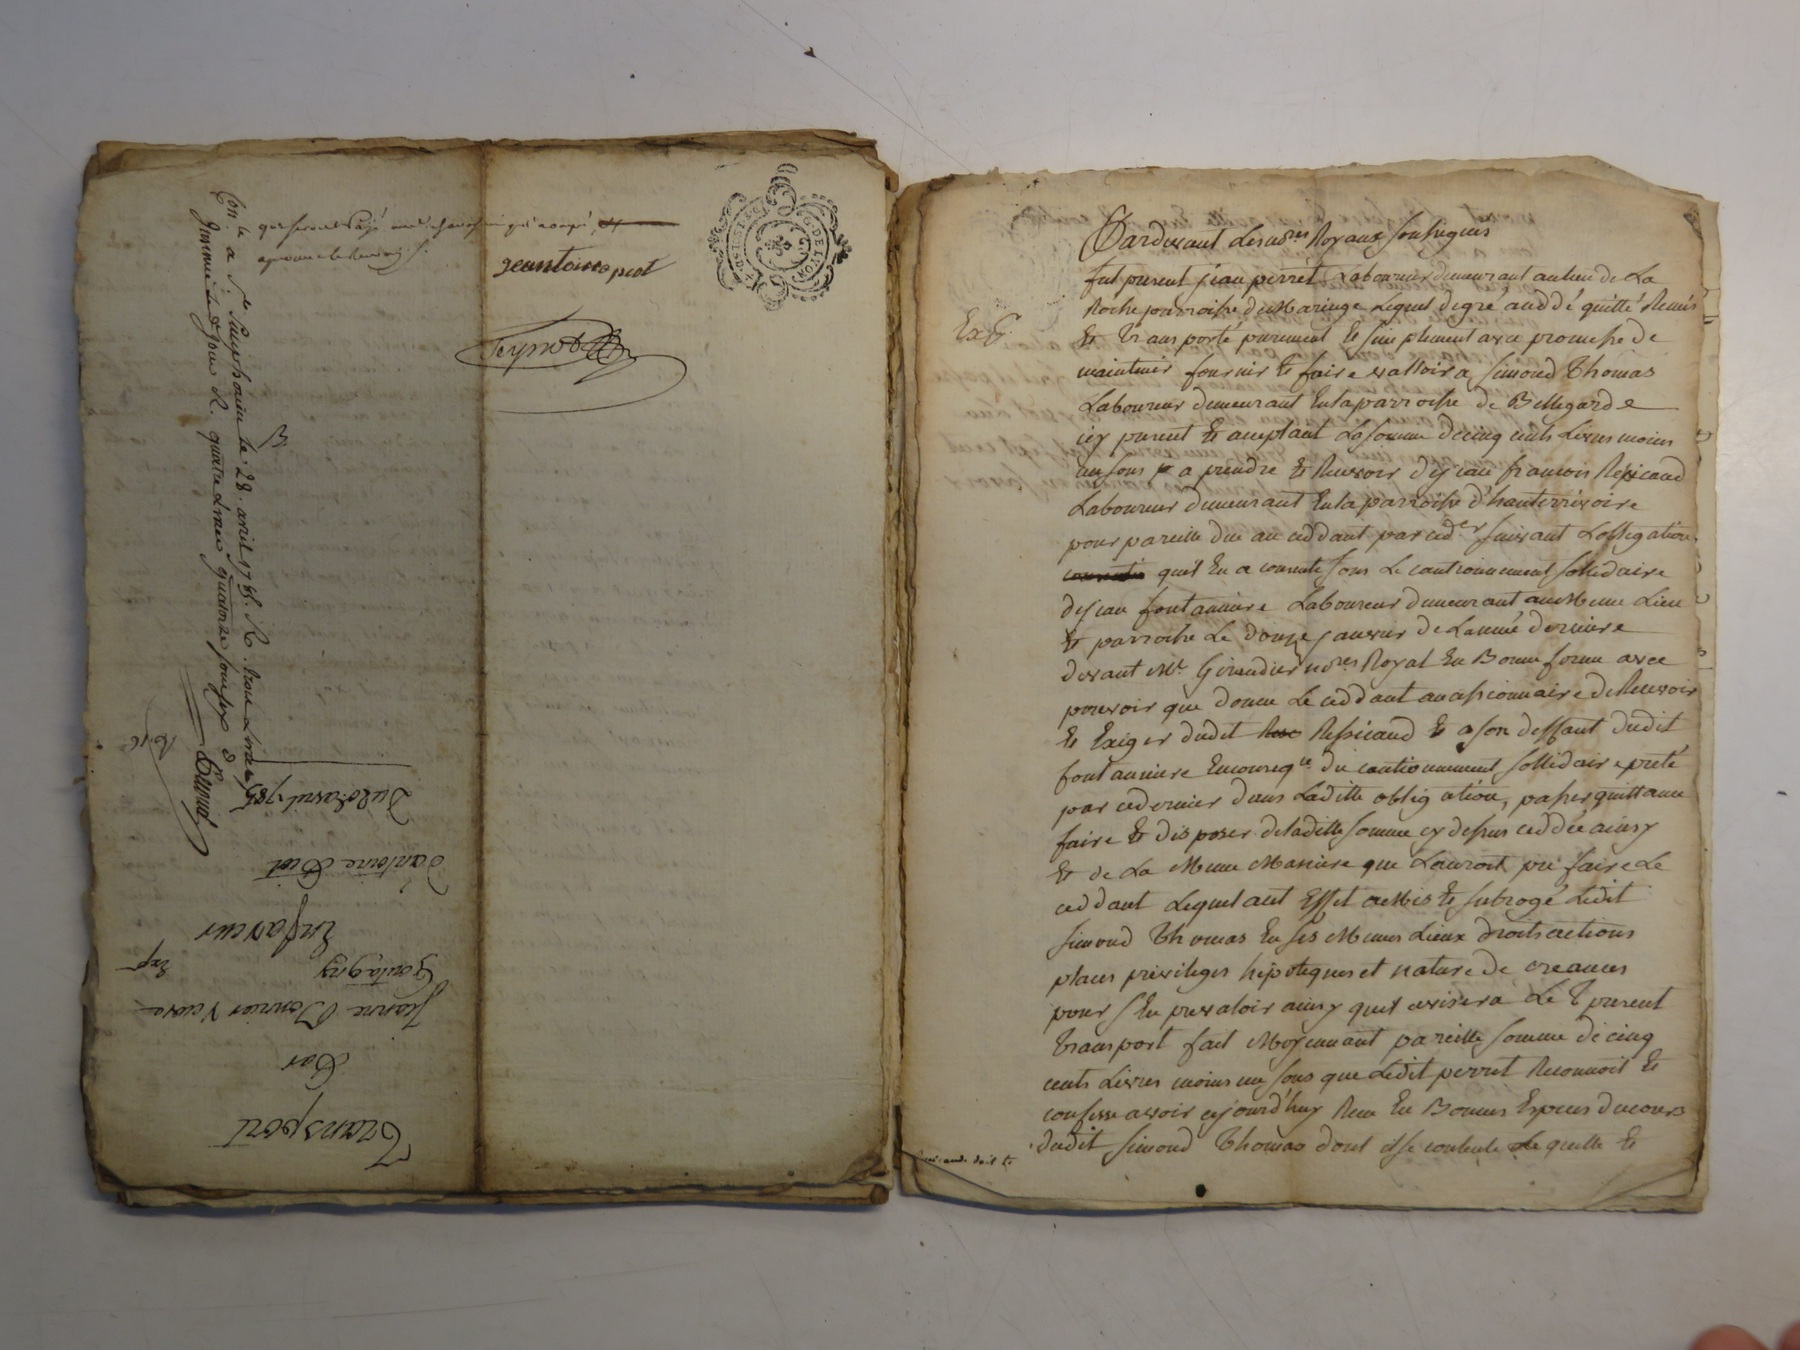 que
approuve
jeantoine piot
G. DE LYON
Con.lé a St Simphorien le 28. avril 1785. R. trois Livres
quatre Livres quatorze sous six d.
Du 20 avril 1785
Transport
Par
Jeanne Bonnier Veuve
Goutagny
Exp.
En faveur
d'antoine Piot
Pardevant Les no.res Royaux soussignés
fut present jean perret Laboureur demeurant au lieu de La
Roche parroisse de Maringe Lequel de gré a ceddé quitté Remis
Ex.é
et transporté purement et simplement avec promesse de
maintenir fournir et faire valloir a Simond Thomas
Laboureur demeurant En la parroisse de Bellegarde
icy present et acceptant La somme de cinq cents Livres moins
un sous a prendre et Recevoir de jean francois Ressicaud
Laboureur demeurant En la parroisse d'hauterivoire
pour pareille due au ceddant par ced.er suivant L'obligation
qu'il En a consentie sous Le cautionnement sollidaire
de jean fontanniere Laboureur demeurant au Meme Lieu
et parroisse Le douze janvier de L'année derniere
devant M.e Giraudier no.re Royal En Bonne forme avec
pouvoir que donne Le ceddant au cessionnaire de Recevoir
et Exiger dudit Ressicaud et a son deffaut dudit
fontanniere En conseq.ce du cautionnement sollidaire preté
par ce dernier dans Laditte obligation, passer quittance
faire et disposer de laditte somme cy dessus ceddée ainsy
et de La Meme Maniere que L'auroit pu faire Le
ceddant Lequel a cet Effet a Mis et subrogé Ledit
Simond Thomas En ses Memes Lieux droits actions
places privileges hipoteques et nature de creances
pour s'En prevaloir ainsy qu'il avisera Le present
transport fait Moyennant pareille somme de cinq
cents Livres moins un sous que Ledit perret Reconnoit et
confesse avoir cejourd'huy Recu En Bonnes Especes du cours
dudit Simond Thomas dont il se contente Le quitte et